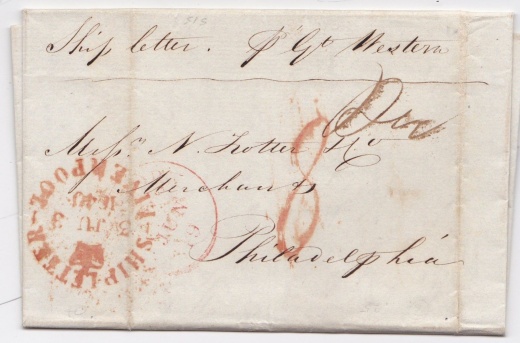 Ship letter. pr Gt Western
Messrs N. Trotter & Co
Merchants
Philadelphia
8
LIVERPOOL
SHIP LETTER